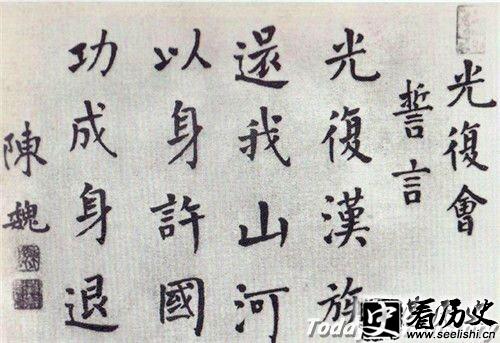 光復會
誓言
光復漢族
還我山河
以身許國
功成身退
陳魏
看历史
www.seelishi.cn